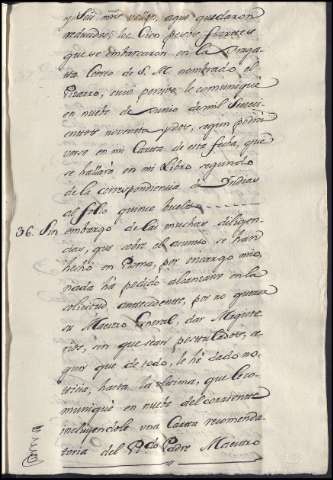 y seis mrs. vellon, aqui quedaron
reducidos, los Cien pesos fuertes
que se embarcaron en la Fraga-
ta Correo de S. M. nombrada el
Pizarro, cuio permiso, le comuniqué
en nuebe de Junio de mil Setec-
cientos noventa y dos, segun podrá
verse en mi Carta de esta fecha, que
se hallará en mi Libro segundo
de la correspondiencia á Yndias
al folio quince buelto
36. Sin embargo de las muchas diligen-
cias, que sobre el asunto se han
hecho en Roma, por encargo mio,
nada ha podido alcanzarse en la
solicitud antecedente, por no querer
su Maestro General, dar Magiste-
rios, sin que sean predicadores, de
que de todo, le hé dado no-
ticia, hasta la ultima, que le co-
muniqué en nuebe del corriente
incluyendole una Carta recomenda-
toria del Pdo. Padre Maestro